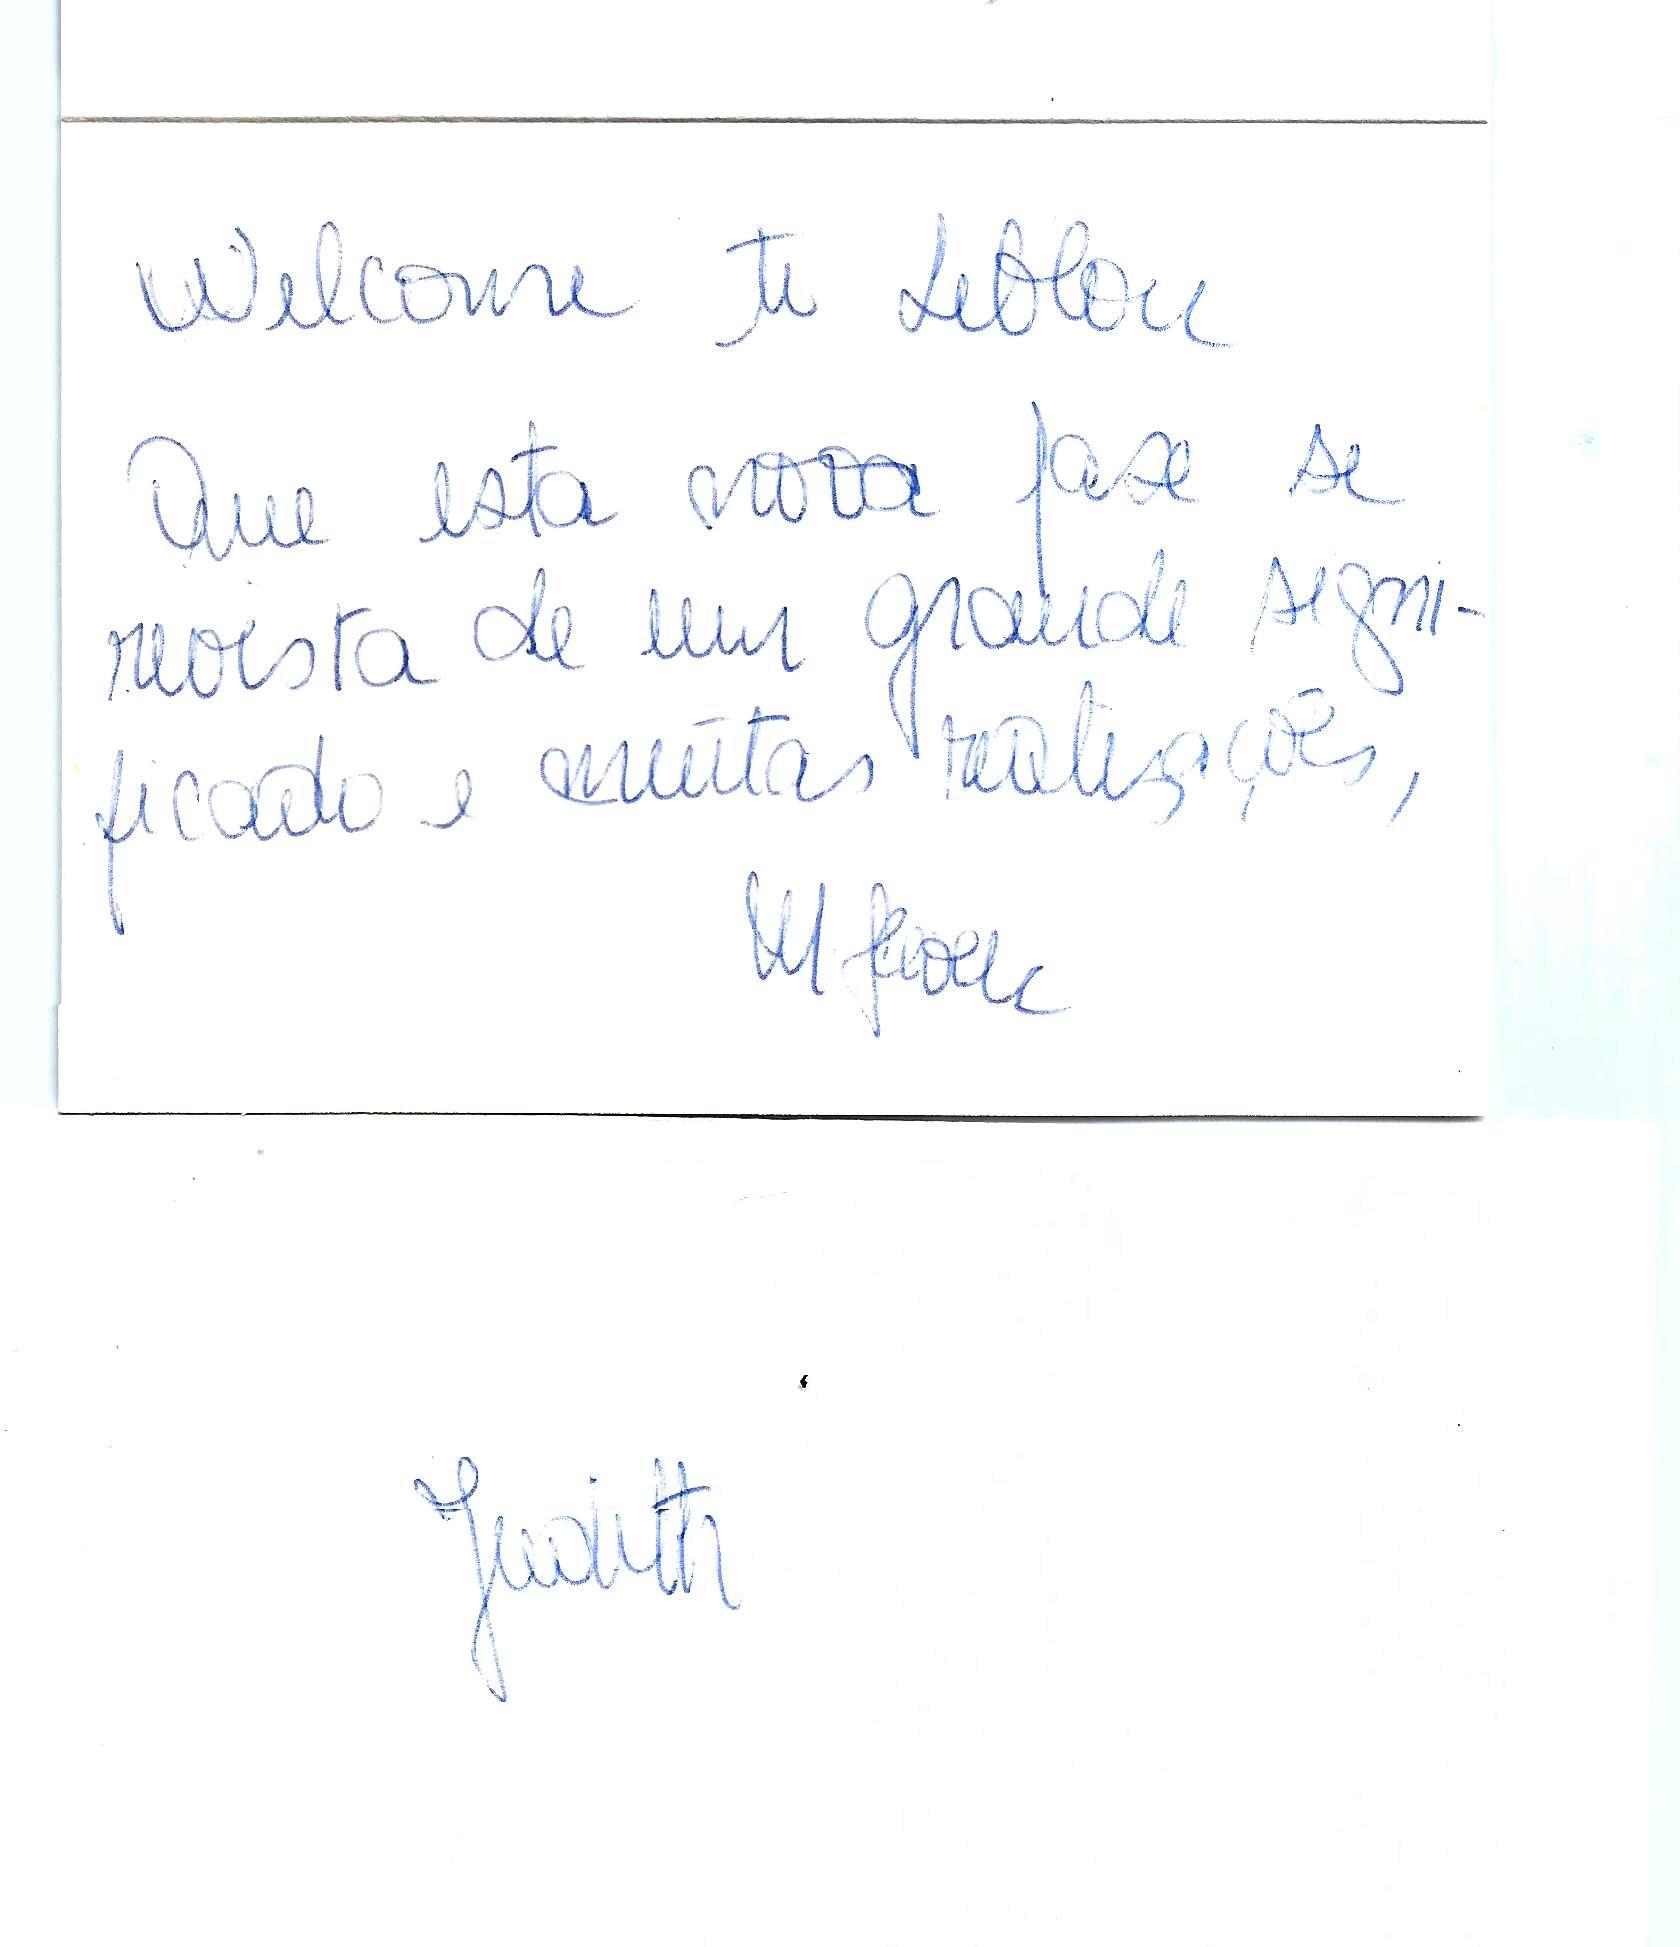 Welcome to Leblon
Que esta nova fase se
revista de um grande signi-
ficado e muitas realizações,
Judith